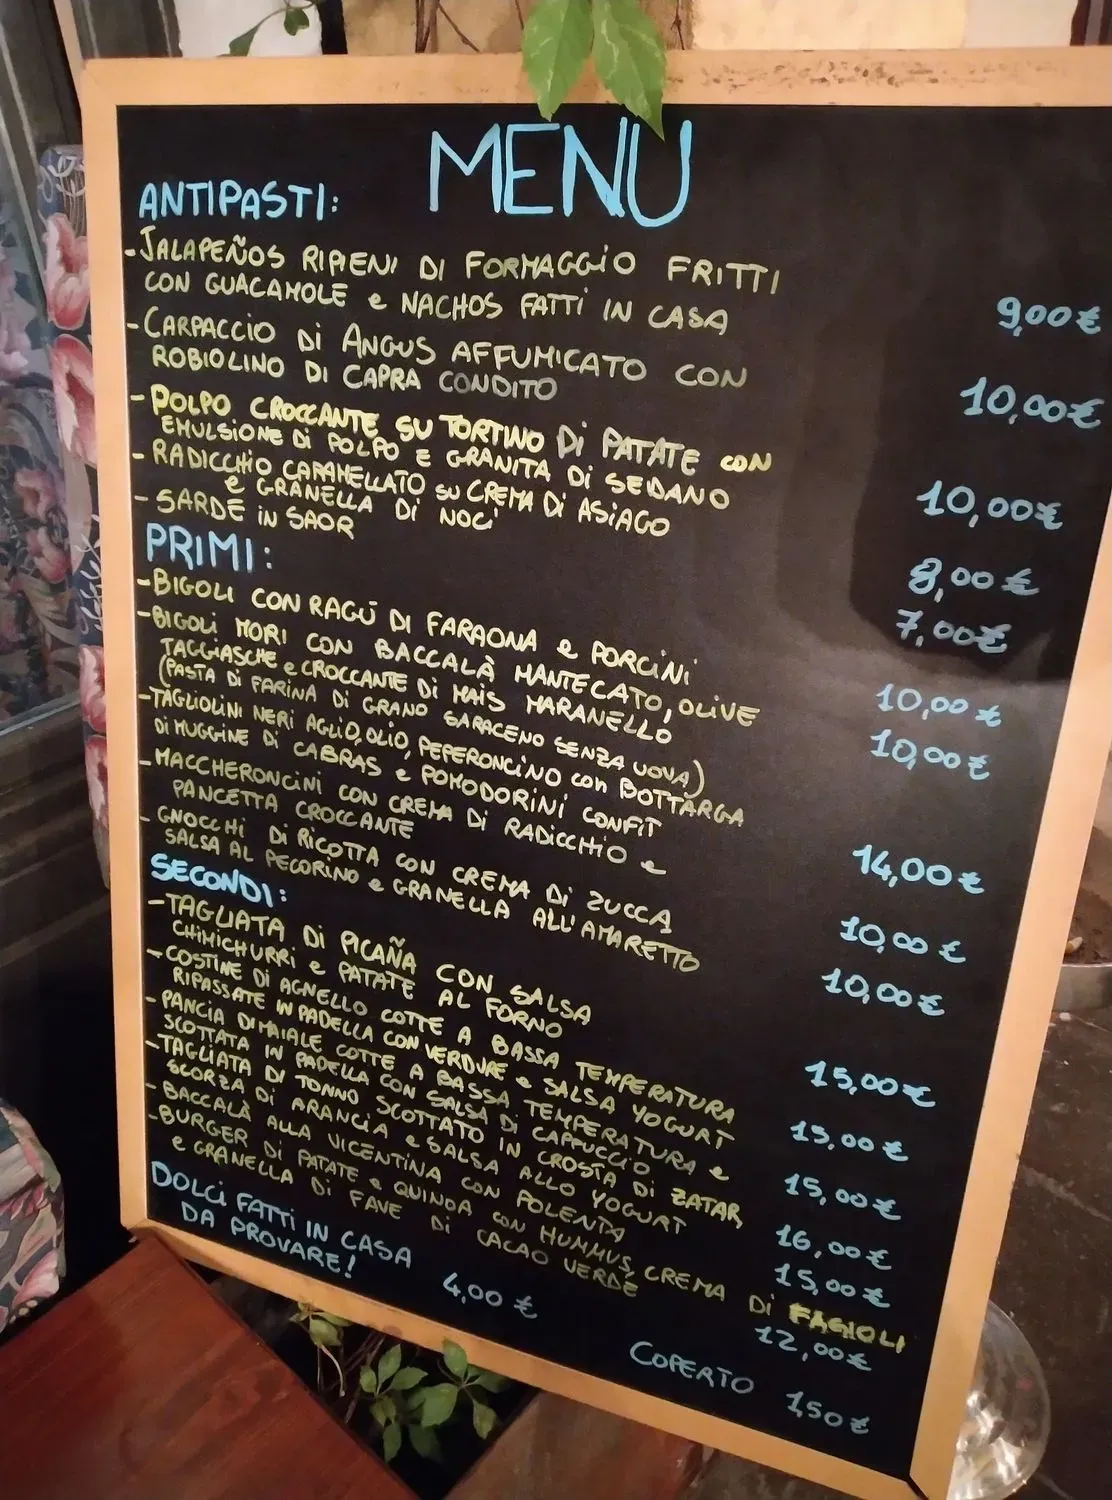 MENU
ANTIPASTI:
-JALAPEÑOS RIPIENI DI FORMAGGIO FRITTI
CON GUACAMOLE e NACHOS FATTI IN CASA 9,00 €
-CARPACCIO DI ANGUS AFFUMICATO CON
ROBIOLINO DI CAPRA CONDITO 10,00€
-POLPO CROCCANTE SU TORTINO DI PATATE CON
EMULSIONE DI POLPO E GRANITA DI SEDANO 10,00€
-RADICCHIO CARAMELLATO SU CREMA DI ASIAGO
e GRANELLA DI NOCI 8,00 €
-SARDE IN SAOR 7,00€
PRIMI:
-BIGOLI CON RAGÙ DI FARAONA e PORCINI 10,00 €
-BIGOLI MORI CON BACCALÀ MANTECATO, OLIVE
TAGGIASCHE e CROCCANTE DI MAIS MARANELLO
(PASTA DI FARINA DI GRANO SARACENO SENZA UOVA) 10,00€
-TAGLIOLINI NERI AGLIO, OLIO, PEPERONCINO con BOTTARGA
DI MUGGINE DI CABRAS e POMODORINI CONFIT 14,00€
-MACCHERONCINI CON CREMA DI RADICCHIO e
PANCETTA CROCCANTE 10,00 €
-GNOCCHI DI RICOTTA CON CREMA DI ZUCCA
SALSA AL PECORINO e GRANELLA ALL'AMARETTO 10,00€
SECONDI:
-TAGLIATA DI PICAÑA CON SALSA
CHIMICHURRI e PATATE AL FORNO 15,00€
-COSTINE DI AGNELLO COTTE A BASSA TEMPERATURA
RIPASSATE IN PADELLA CON VERDURE e SALSA YOGURT 15,00€
-PANCIA DI MAIALE COTTE A BASSA TEMPERATURA e
SCOTTATA IN PADELLA CON SALSA DI CAPPUCCIO 15,00€
-TAGLIATA DI TONNO SCOTTATO IN CROSTA DI ZATAR
SCORZA DI ARANCIA e SALSA ALLO YOGURT 16,00€
-BACCALÀ ALLA VICENTINA CON POLENTA 15,00€
-BURGER DI PATATE e QUINOA CON HUMMUS, CREMA DI FAGIOLI
e GRANELLA DI FAVE DI CACAO VERDE 12,00€
DOLCI FATTI IN CASA
DA PROVARE! 4,00 €
COPERTO 1,50€